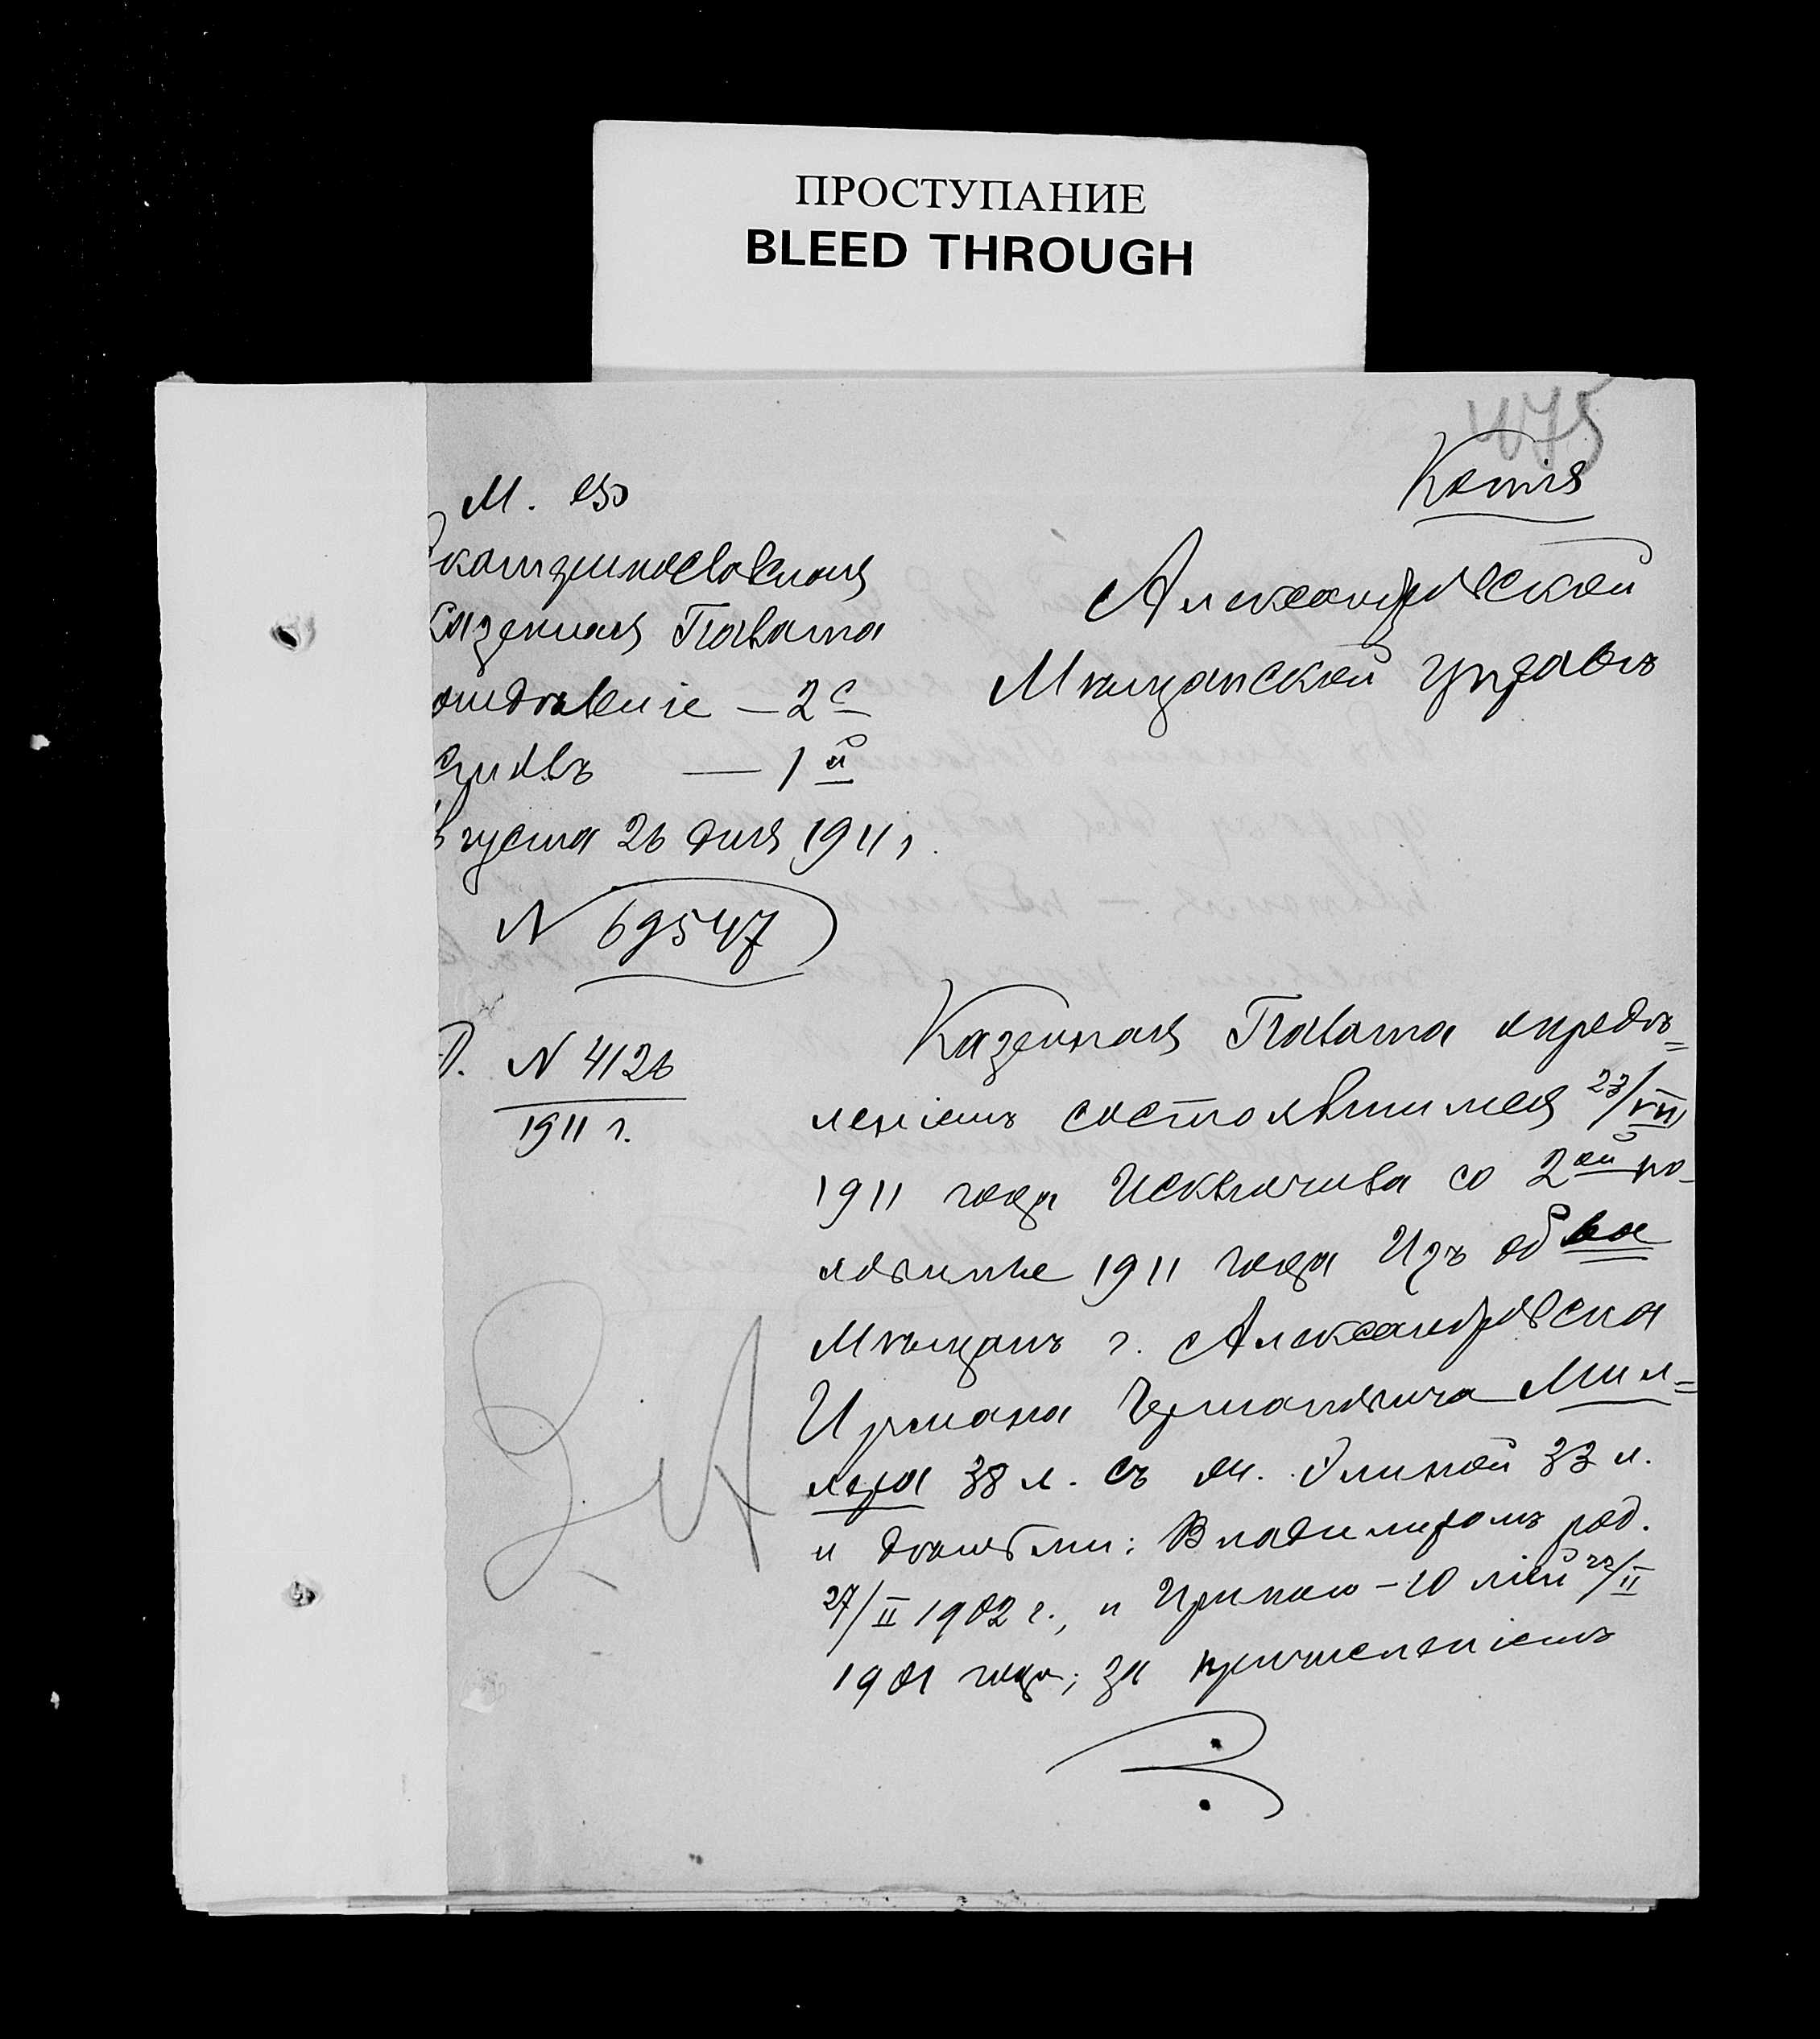 ПРОСТУПАНИЕ
BLEED THROUGH
475
Копія
М. Ф.
катеринославская
Казенная Палата
отдѣленіе — 2е
столъ — 1й
вгуста 26 дня 1911 г.
N 69547
Д. N 4126
1911 г.
Александровской
Мѣщанской Управѣ
Казенная Палата опредѣ=
леніемъ состоявшимся 23/VIII
1911 года исключила со 2ой по-
ловины 1911 года изъ об ва
Мѣщанъ г. Александровска
Ирмана Германовича Мил=
лера 38 л. съ ж. Элиной 33 л.
и дѣтьми: Владимиромъ род.
27/II 1902 г., и Ириною – 10 лѣт 22/II
1901 года; за причисленіемъ